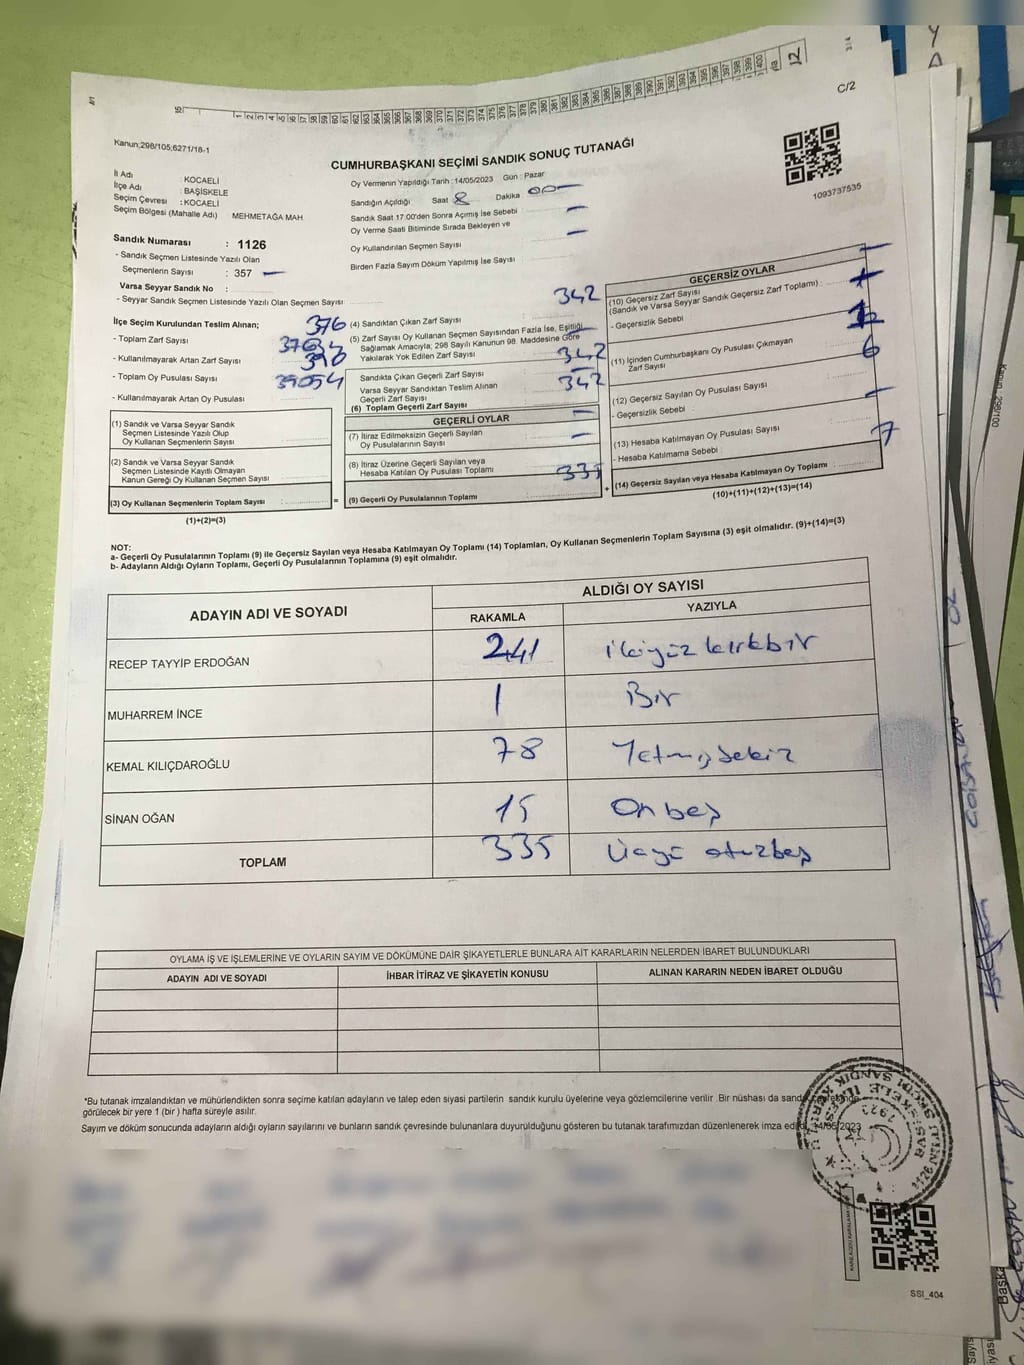 C/2
Kanun;298/105;6271/18-1
CUMHURBAŞKANI SEÇİMİ SANDIK SONUÇ TUTANAĞI
1093737535
İl Adı : KOCAELİ
İlçe Adı : BAŞİSKELE
Seçim Çevresi : KOCAELİ
Seçim Bölgesi (Mahalle Adı) MEHMETAĞA MAH.
Sandık Numarası : 1126
- Sandık Seçmen Listesinde Yazılı Olan
Seçmenlerin Sayısı : 357
Varsa Seyyar Sandık No :
- Seyyar Sandık Seçmen Listesinde Yazılı Olan Seçmen Sayısı
Oy Vermenin Yapıldığı Tarih : 14/05/2023 Gün : Pazar
Sandığın Açıldığı Saat 8 Dakika 00
Sandık Saat 17:00'den Sonra Açmış İse Sebebi
Oy Verme Saati Bitiminde Sırada Bekleyen ve
Oy Kullandırılan Seçmen Sayısı
Birden Fazla Sayım Döküm Yapılmış İse Sayısı
İlçe Seçim Kurulundan Teslim Alınan;
- Toplam Zarf Sayısı 376
- Kullanılmayarak Artan Zarf Sayısı
- Toplam Oy Pusulası Sayısı
- Kullanılmayarak Artan Oy Pusulası
(1) Sandık ve Varsa Seyyar Sandık
Seçmen Listesinde Yazılı Olup
Oy Kullanan Seçmenlerin Sayısı
(2) Sandık ve Varsa Seyyar Sandık
Seçmen Listesinde Kayıtlı Olmayan
Kanun Gereği Oy Kullanan Seçmen Sayısı
(3) Oy Kullanan Seçmenlerin Toplam Sayısı :
(1)+(2)=(3)
(4) Sandıktan Çıkan Zarf Sayısı 342
(5) Zarf Sayısı Oy Kullanan Seçmen Sayısından Fazla İse, Eşitliği
Sağlamak Amacıyla; 298 Sayılı Kanunun 98. Maddesine Göre
Yakılarak Yok Edilen Zarf Sayısı
Sandıkta Çıkan Geçerli Zarf Sayısı 342
Varsa Seyyar Sandıktan Teslim Alınan
Geçerli Zarf Sayısı
(6) Toplam Geçerli Zarf Sayısı 342
GEÇERLİ OYLAR
(7) İtiraz Edilmeksizin Geçerli Sayılan
Oy Pusulalarının Sayısı
(8) İtiraz Üzerine Geçerli Sayılan veya
Hesaba Katılan Oy Pusulası Toplamı
= (9) Geçerli Oy Pusulalarının Toplamı 335
GEÇERSİZ OYLAR
(10) Geçersiz Zarf Sayısı
(Sandık ve Varsa Seyyar Sandık Geçersiz Zarf Toplamı) :
- Geçersizlik Sebebi
(11) İçinden Cumhurbaşkanı Oy Pusulası Çıkmayan
Zarf Sayısı
(12) Geçersiz Sayılan Oy Pusulası Sayısı 6
- Geçersizlik Sebebi
(13) Hesaba Katılmayan Oy Pusulası Sayısı
- Hesaba Katılmama Sebebi
+ (14) Geçersiz Sayılan veya Hesaba Katılmayan Oy Toplamı 7
(10)+(11)+(12)+(13)=(14)
NOT:
a- Geçerli Oy Pusulalarının Toplamı (9) ile Geçersiz Sayılan veya Hesaba Katılmayan Oy Toplamı (14) Toplamları, Oy Kullanan Seçmenlerin Toplam Sayısına (3) eşit olmalıdır. (9)+(14)=(3)
b- Adayların Aldığı Oyların Toplamı, Geçerli Oy Pusulalarının Toplamına (9) eşit olmalıdır.
ADAYIN ADI VE SOYADI ALDIĞI OY SAYISI
RAKAMLA YAZIYLA
RECEP TAYYİP ERDOĞAN 241 ikiyüz kırkbir
MUHARREM İNCE 1 Bir
KEMAL KILIÇDAROĞLU 78 Yetmişsekiz
SİNAN OĞAN 15 On beş
TOPLAM 335 Üçyü otuzbeş
OYLAMA İŞ VE İŞLEMLERİNE VE OYLARIN SAYIM VE DÖKÜMÜNE DAİR ŞİKAYETLERLE BUNLARA AİT KARARLARIN NELERDEN İBARET BULUNDUKLARI
ADAYIN ADI VE SOYADI İHBAR İTİRAZ VE ŞİKAYETİN KONUSU ALINAN KARARIN NEDEN İBARET OLDUĞU
*Bu tutanak imzalandıktan ve mühürlendikten sonra seçime katılan adayların ve talep eden siyasi partilerin sandık kurulu üyelerine veya gözlemcilerine verilir .Bir nüshası da sandık çevresinde
görülecek bir yere 1 (bir ) hafta süreyle asılır.
Sayım ve döküm sonucunda adayların aldığı oyların sayılarını ve bunların sandık çevresinde bulunanlara duyurulduğunu gösteren bu tutanak tarafımızdan düzenlenerek imza edildi. 14/05/2023
SSI_404